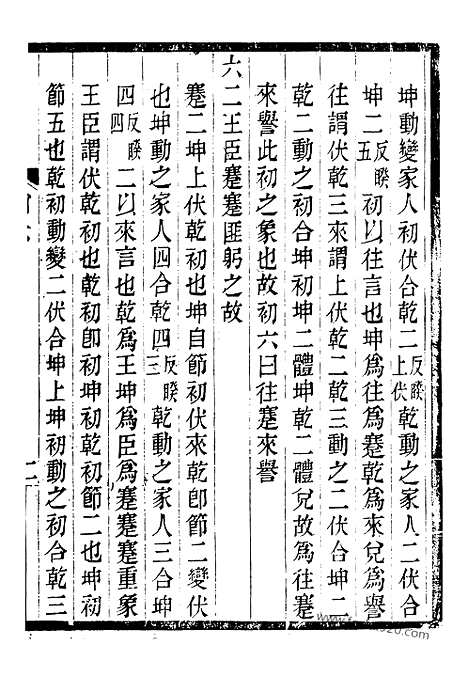 坤動變家人初伏合乾二反睽上伏乾動之家人二伏合
坤二反睽五初以往言也坤為往為蹇乾為來兌為譽
往謂伏乾三來謂上伏乾二乾三動之二伏合坤二
乾二動之初合坤初坤二體坤乾二體兌故為往蹇
來譽此初之象也故初六曰往蹇來譽
六二王臣蹇蹇匪躬之故
蹇二坤上伏乾初也坤自節初伏來乾卽節二變伏
也坤動之家人四合乾四反睽三乾動之家人三合坤
四反睽四二以來言也乾為王坤為臣為蹇蹇蹇重象
王臣謂伏乾初也乾初卽初坤初乾初節二也坤初
節五也乾初動變二伏合坤上坤初動之初合乾三